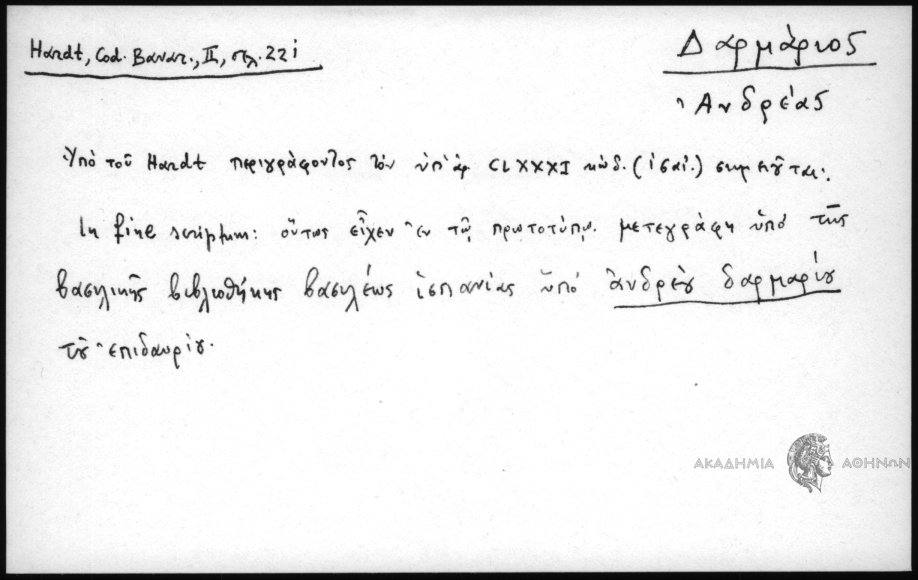 Hardt, Cod. Bavar., II, σελ. 221
Δαρμάριος
Ἀνδρέας
Ὑπὸ τοῦ Hardt περιγράφοντος τὸν ὑπ' ἀρ CLXXXI κώδ. (ἰσαί.) σημειοῦται:
In fine scriptum: οὕτως εἶχεν ἐν τῷ πρωτοτύπῳ. μετεγράφη ὑπὸ τῆς
βασιλικῆς βιβλιοθήκης βασιλέως ἱσπανίας ὑπὸ ἀνδρέου δαρμαρίου
τοῦ ἐπιδαυρίου.
ΑΚΑΔΗΜΙΑ ΑΘΗΝΩΝ